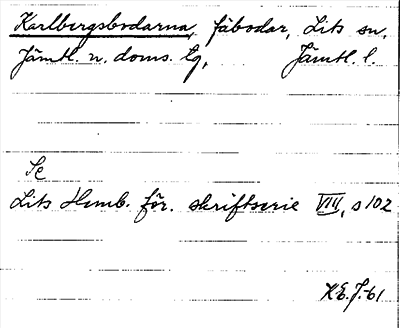 Karlbergsbodarna, fäbodar, Lits sn,
Jämtl. n. doms. tg, Jämtl. l.
Se
Lits Hemb. för. skriftserie VIII, s 102
K E. J. -61